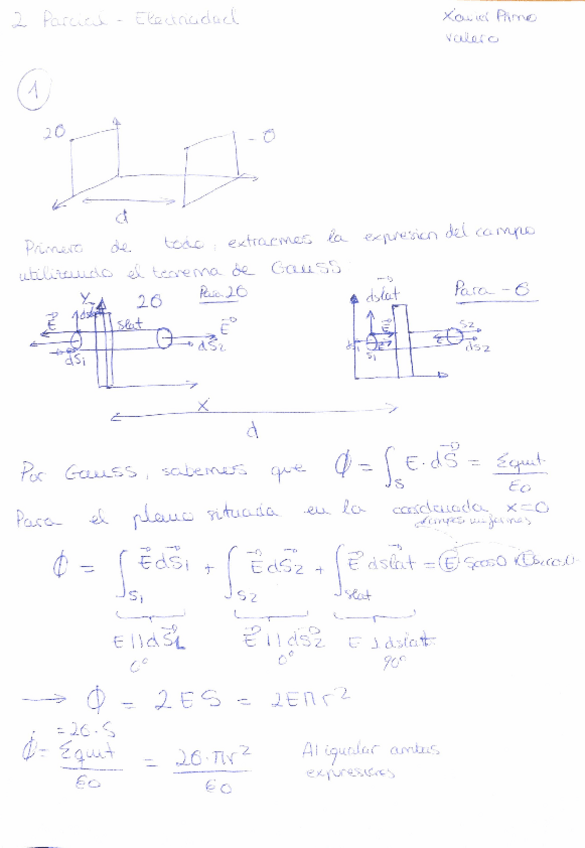 2 Parcial - Electricidad
Xavier Primo
Valero
1
2σ
- σ
d
Primero de todo, extraemos la expresion del campo
utilizando el teorema de Gauss
Y
2σ
Para 2σ
dslat
Para - σ
E
dslat
slat
E
dS1
dS2
E
S1
E
S2
dS2
x
d
Por Gauss, sabemos que ϕ = ∫S E · dS = Σqint / ε0
Para el plano situada en la coordenada x=0
campos uniformes
ϕ = ∫S1 E dS1 + ∫S2 E dS2 + ∫Slat E dslat = E S cos0 +
E || dS1 E || dS2 E ⊥ dslat
0° 0° 90°
→ ϕ = 2ES = 2Eπr²
= 2σ·S
ϕ = Σqint / ε0 = 2σ·πr² / ε0
Al igualar ambas
expresiones